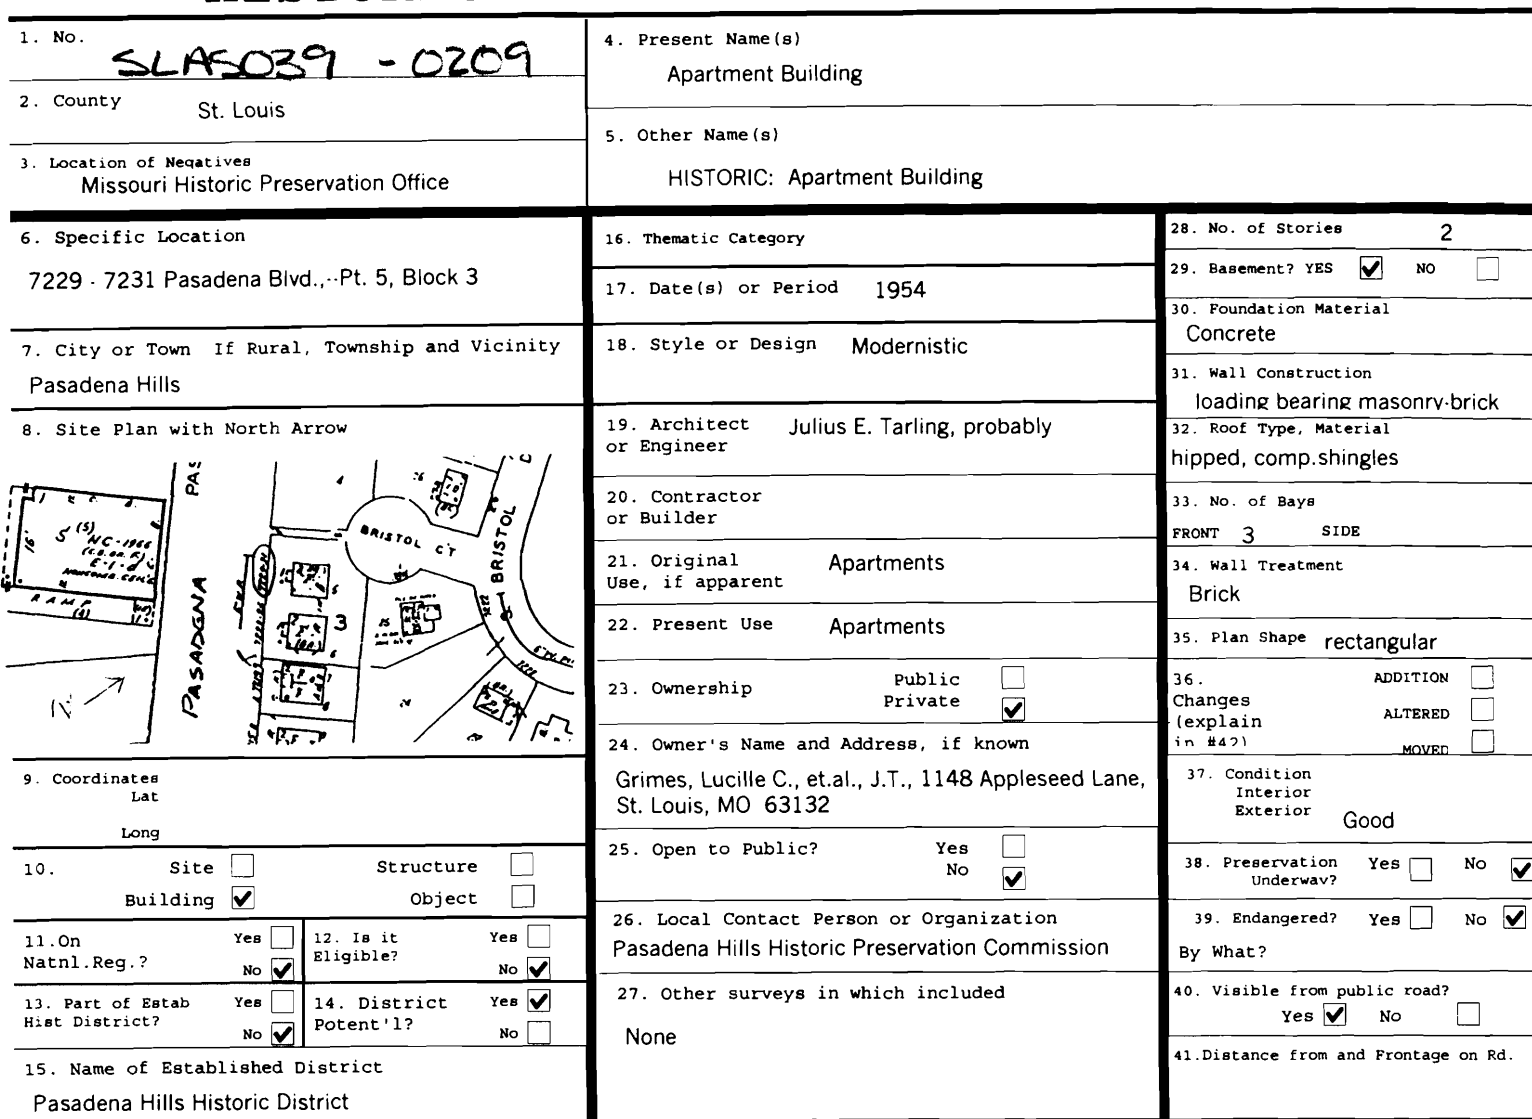 1. No.
SLAS039 - 0209
2. County St. Louis
3. Location of Negatives
Missouri Historic Preservation Office
4. Present Name(s)
Apartment Building
5. Other Name(s)
HISTORIC: Apartment Building
6. Specific Location
7229 - 7231 Pasadena Blvd.,--Pt. 5, Block 3
7. City or Town If Rural, Township and Vicinity
Pasadena Hills
8. Site Plan with North Arrow
PAS
PASADENA
BRISTOL CT
BRISTOL
RAMP
3
N
9. Coordinates
Lat
Long
10. Site Structure
Building Object
11.On Natnl.Reg.? Yes No
12. Is it Eligible? Yes No
13. Part of Estab Hist District? Yes No
14. District Potent'l? Yes No
15. Name of Established District
Pasadena Hills Historic District
16. Thematic Category
17. Date(s) or Period 1954
18. Style or Design Modernistic
19. Architect or Engineer Julius E. Tarling, probably
20. Contractor
or Builder
21. Original Use, if apparent Apartments
22. Present Use Apartments
23. Ownership Public
Private
24. Owner's Name and Address, if known
Grimes, Lucille C., et.al., J.T., 1148 Appleseed Lane,
St. Louis, MO 63132
25. Open to Public? Yes
No
26. Local Contact Person or Organization
Pasadena Hills Historic Preservation Commission
27. Other surveys in which included
None
28. No. of Stories 2
29. Basement? YES NO
30. Foundation Material
Concrete
31. Wall Construction
loading bearing masonry-brick
32. Roof Type, Material
hipped, comp.shingles
33. No. of Bays
FRONT 3 SIDE
34. Wall Treatment
Brick
35. Plan Shape rectangular
36. ADDITION
Changes
(explain ALTERED
in #42) MOVED
37. Condition
Interior
Exterior Good
38. Preservation Underway? Yes No
39. Endangered? Yes No
By What?
40. Visible from public road?
Yes No
41.Distance from and Frontage on Rd.